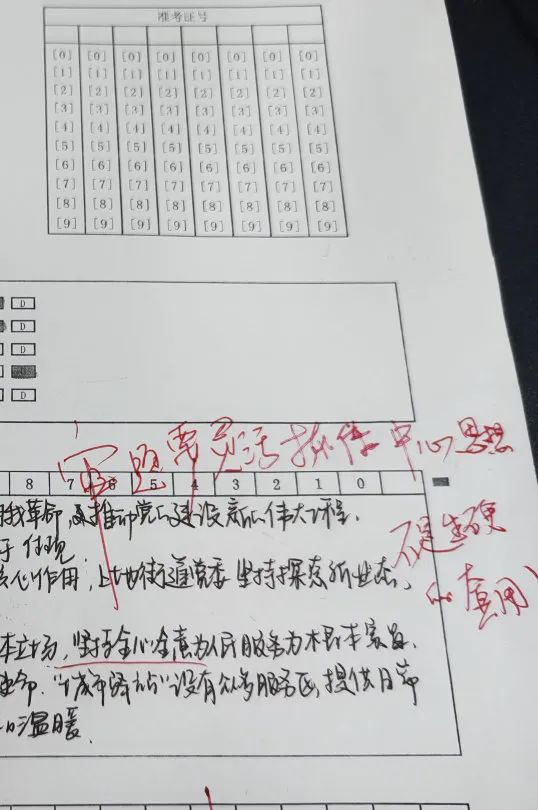 准考证号
[0] [0] [0] [0] [0] [0] [0] [0]
[1] [1] [1] [1] [1] [1] [1] [1]
[2] [2] [2] [2] [2] [2] [2] [2]
[3] [3] [3] [3] [3] [3] [3] [3]
[4] [4] [4] [4] [4] [4] [4] [4]
[5] [5] [5] [5] [5] [5] [5] [5]
[6] [6] [6] [6] [6] [6] [6] [6]
[7] [7] [7] [7] [7] [7] [7] [7]
[8] [8] [8] [8] [8] [8] [8] [8]
[9] [9] [9] [9] [9] [9] [9] [9]
D
D
D
D
审题要灵活 中心思想
8 7 6 5 4 3 2 1 0
我革命,推动党的建设新的伟大工程.
于
核心作用,上地街道党委坚持探索新业态,
不是生硬
的套用
本立场,坚持全心全意为人民服务为根本宗旨.
使命."城市驿站"设有公共服务区,提供日常
的温暖.